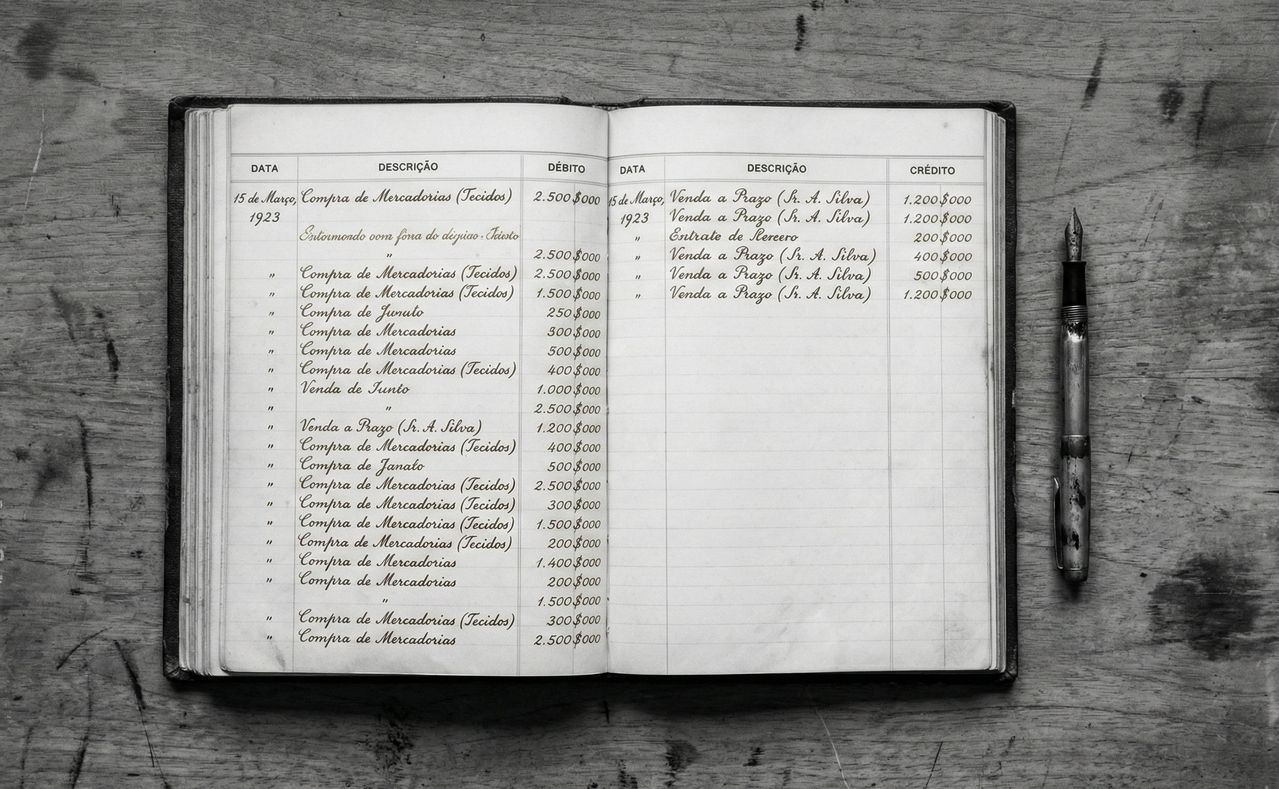 DATA DESCRIÇÃO DÉBITO
15 de Março, Compra de Mercadorias (Tecidos) 2.500$000
1923
" 2.500$000
" Compra de Mercadorias (Tecidos) 2.500$000
" Compra de Mercadorias (Tecidos) 1.500$000
" Compra de 250$000
" Compra de Mercadorias 300$000
" Compra de Mercadorias 500$000
" Compra de Mercadorias (Tecidos) 400$000
" Venda de 1.000$000
" " 2.500$000
" Venda a Prazo (Sr. A. Silva) 1.200$000
" Compra de Mercadorias (Tecidos) 400$000
" Compra de Janato 500$000
" Compra de Mercadorias (Tecidos) 2.500$000
" Compra de Mercadorias (Tecidos) 300$000
" Compra de Mercadorias (Tecidos) 1.500$000
" Compra de Mercadorias (Tecidos) 200$000
" Compra de Mercadorias 1.400$000
" Compra de Mercadorias 200$000
" 1.500$000
" Compra de Mercadorias (Tecidos) 300$000
" Compra de Mercadorias 2.500$000
DATA DESCRIÇÃO CRÉDITO
15 de Março, Venda a Prazo (Sr. A. Silva) 1.200$000
1923 Venda a Prazo (Sr. A. Silva) 1.200$000
" Entrate de 200$000
" Venda a Prazo (Sr. A. Silva) 400$000
" Venda a Prazo (Sr. A. Silva) 500$000
" Venda a Prazo (Sr. A. Silva) 1.200$000